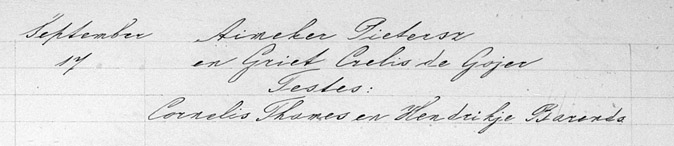 September Aimeker Pietersz
17 en Griet Crelis de Gojer
Testes:
Cornelis Thames en Hendrikje Barends